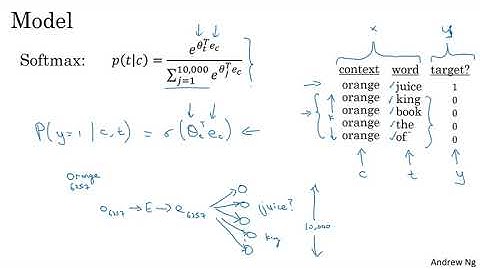 Model
Softmax: p(t|c) = e^{θ_t^T e_c} / Σ_{j=1}^{10,000} e^{θ_j^T e_c}
x y
context word target?
orange juice 1
orange king 0
orange book 0
orange the 0
orange of 0
k
c t y
P(y=1 | c,t) = σ(θ_t^T e_c) ←
Orange
6257
o_6257 → E → e_6257
juice?
king
10,000
Andrew Ng